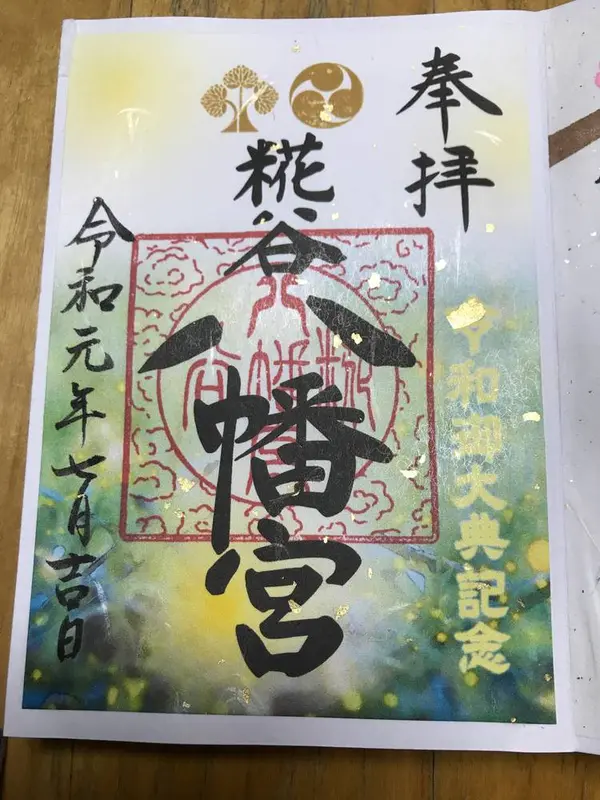 奉拝
令和御大典記念
糀谷
八幡宮
令和元年七月吉日